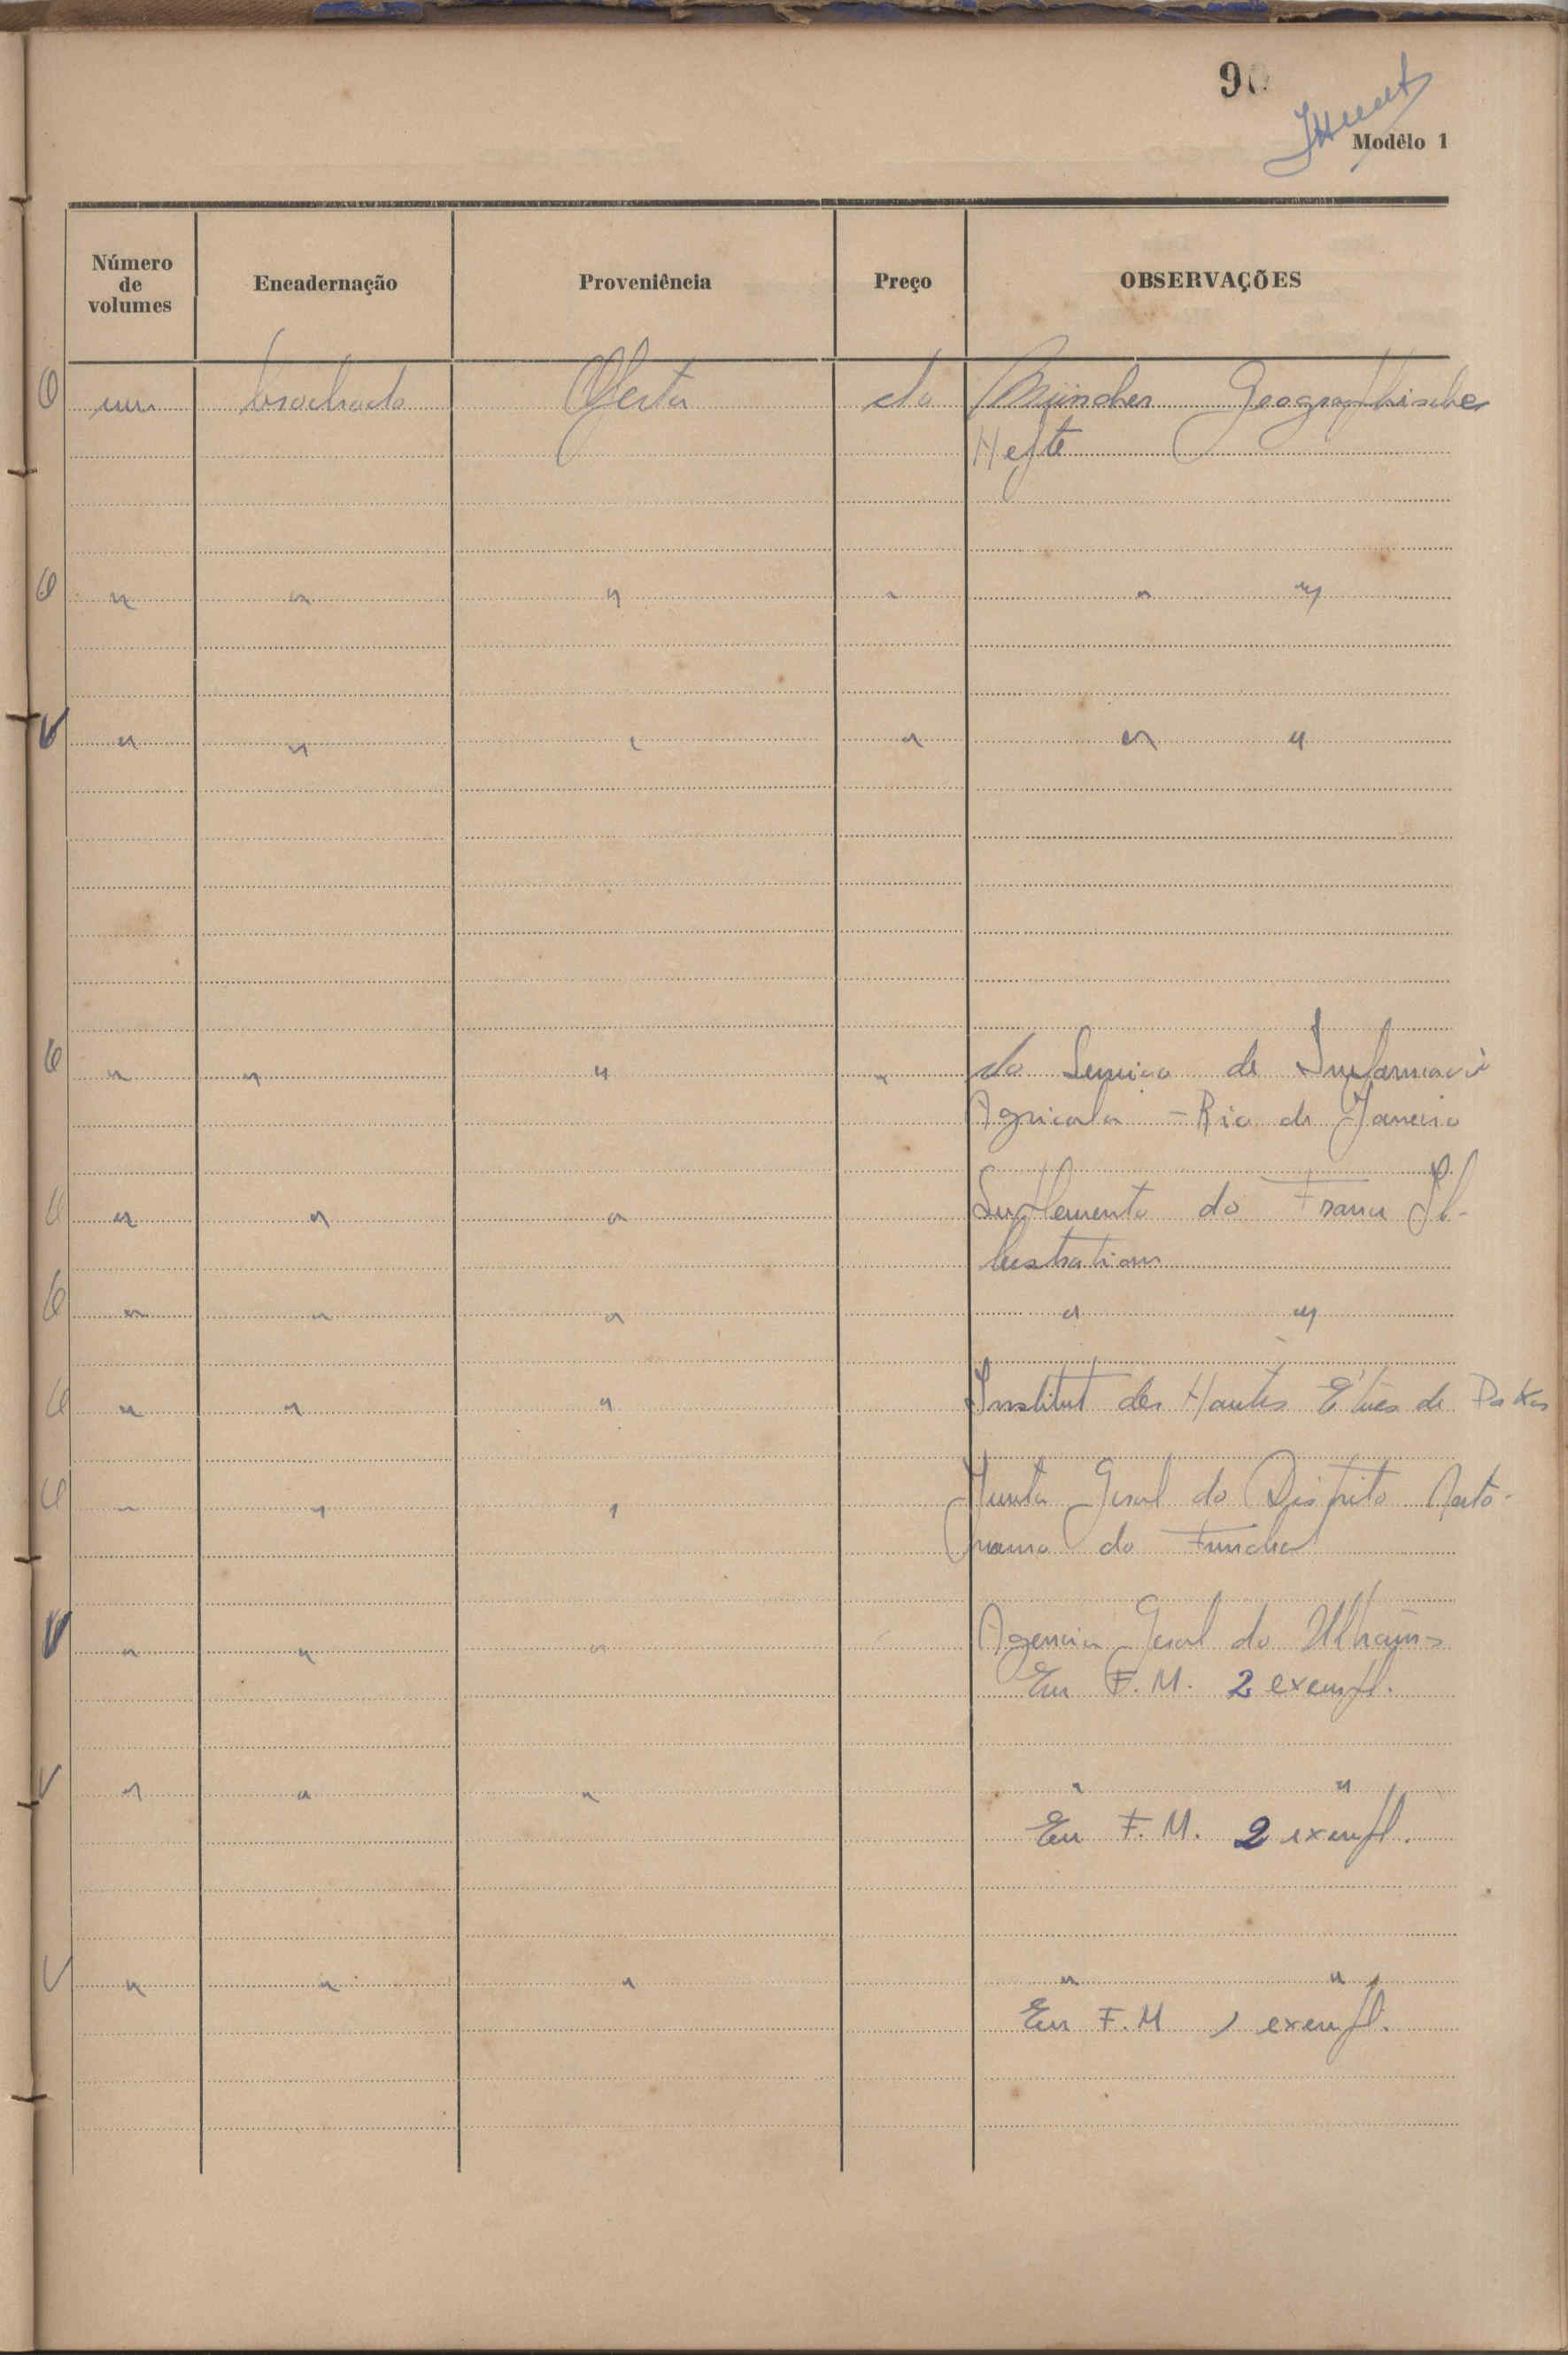 90
Modêlo 1
Número de volumes Encadernação Proveniência Preço OBSERVAÇÕES
um brochado Oferta da München Geographischer
Hefte
" " " " " "
" " " " " "
" " " " do Serviço de Informação
Agricola - Rio de Janeiro
" " " Suplemento do France Il-
lustration
" " " " "
" " " Institut des Hautes de Dakar
" " " Junta Geral do Distrito Autó-
nomo do Funchal
" " " Agencia Geral do Ultramar
Em F. M. 2 exempl.
" " " " "
Em F. M. 2 exempl.
" " " " "
Em F. M 1 exempl.